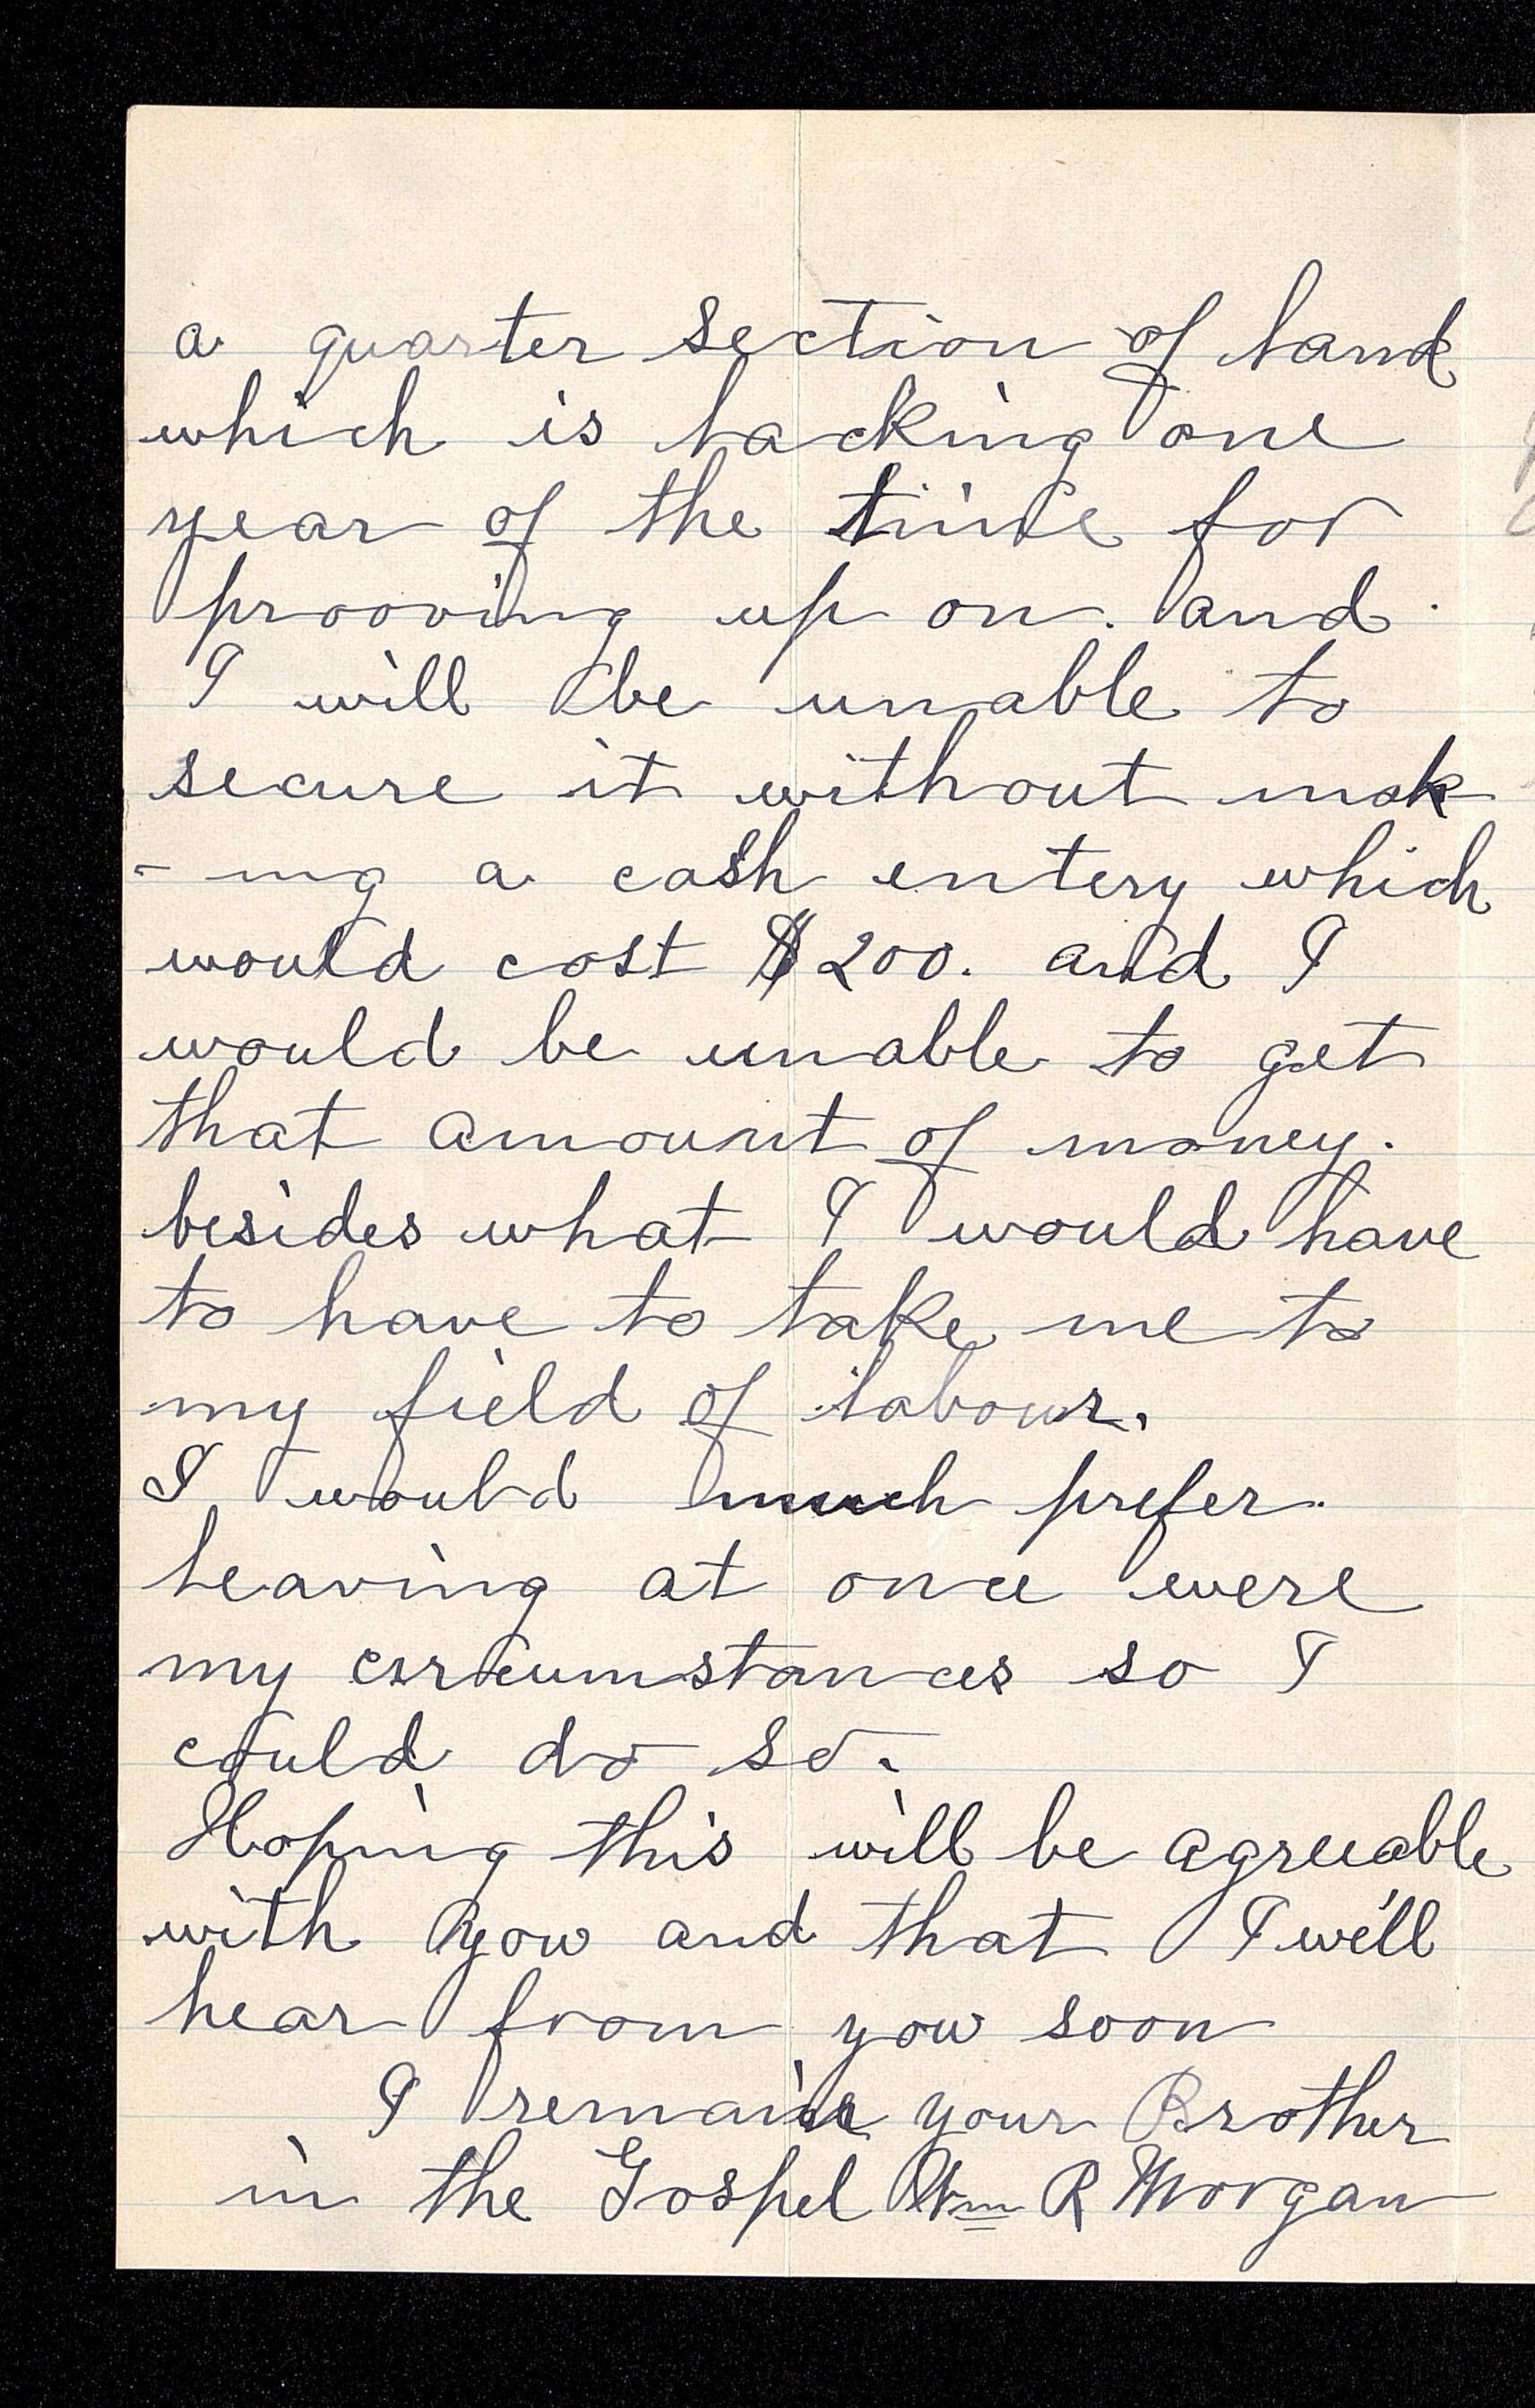 a quarter section of land
which is lacking one
year of the time for
prooving up on. and
I will be unable to
secure it without mak
-ing a cash entery which
would cost $200. and I
would be unable to get
that amount of money.
besides what I would have
to have to take me to
my field of labour.
I would much prefer
leaving at once were
my circumstances so I
could do so.
Hoping this will be agreeable
with you and that I will
hear from you soon
I remain your Brother
in the Gospel Wm R Morgan